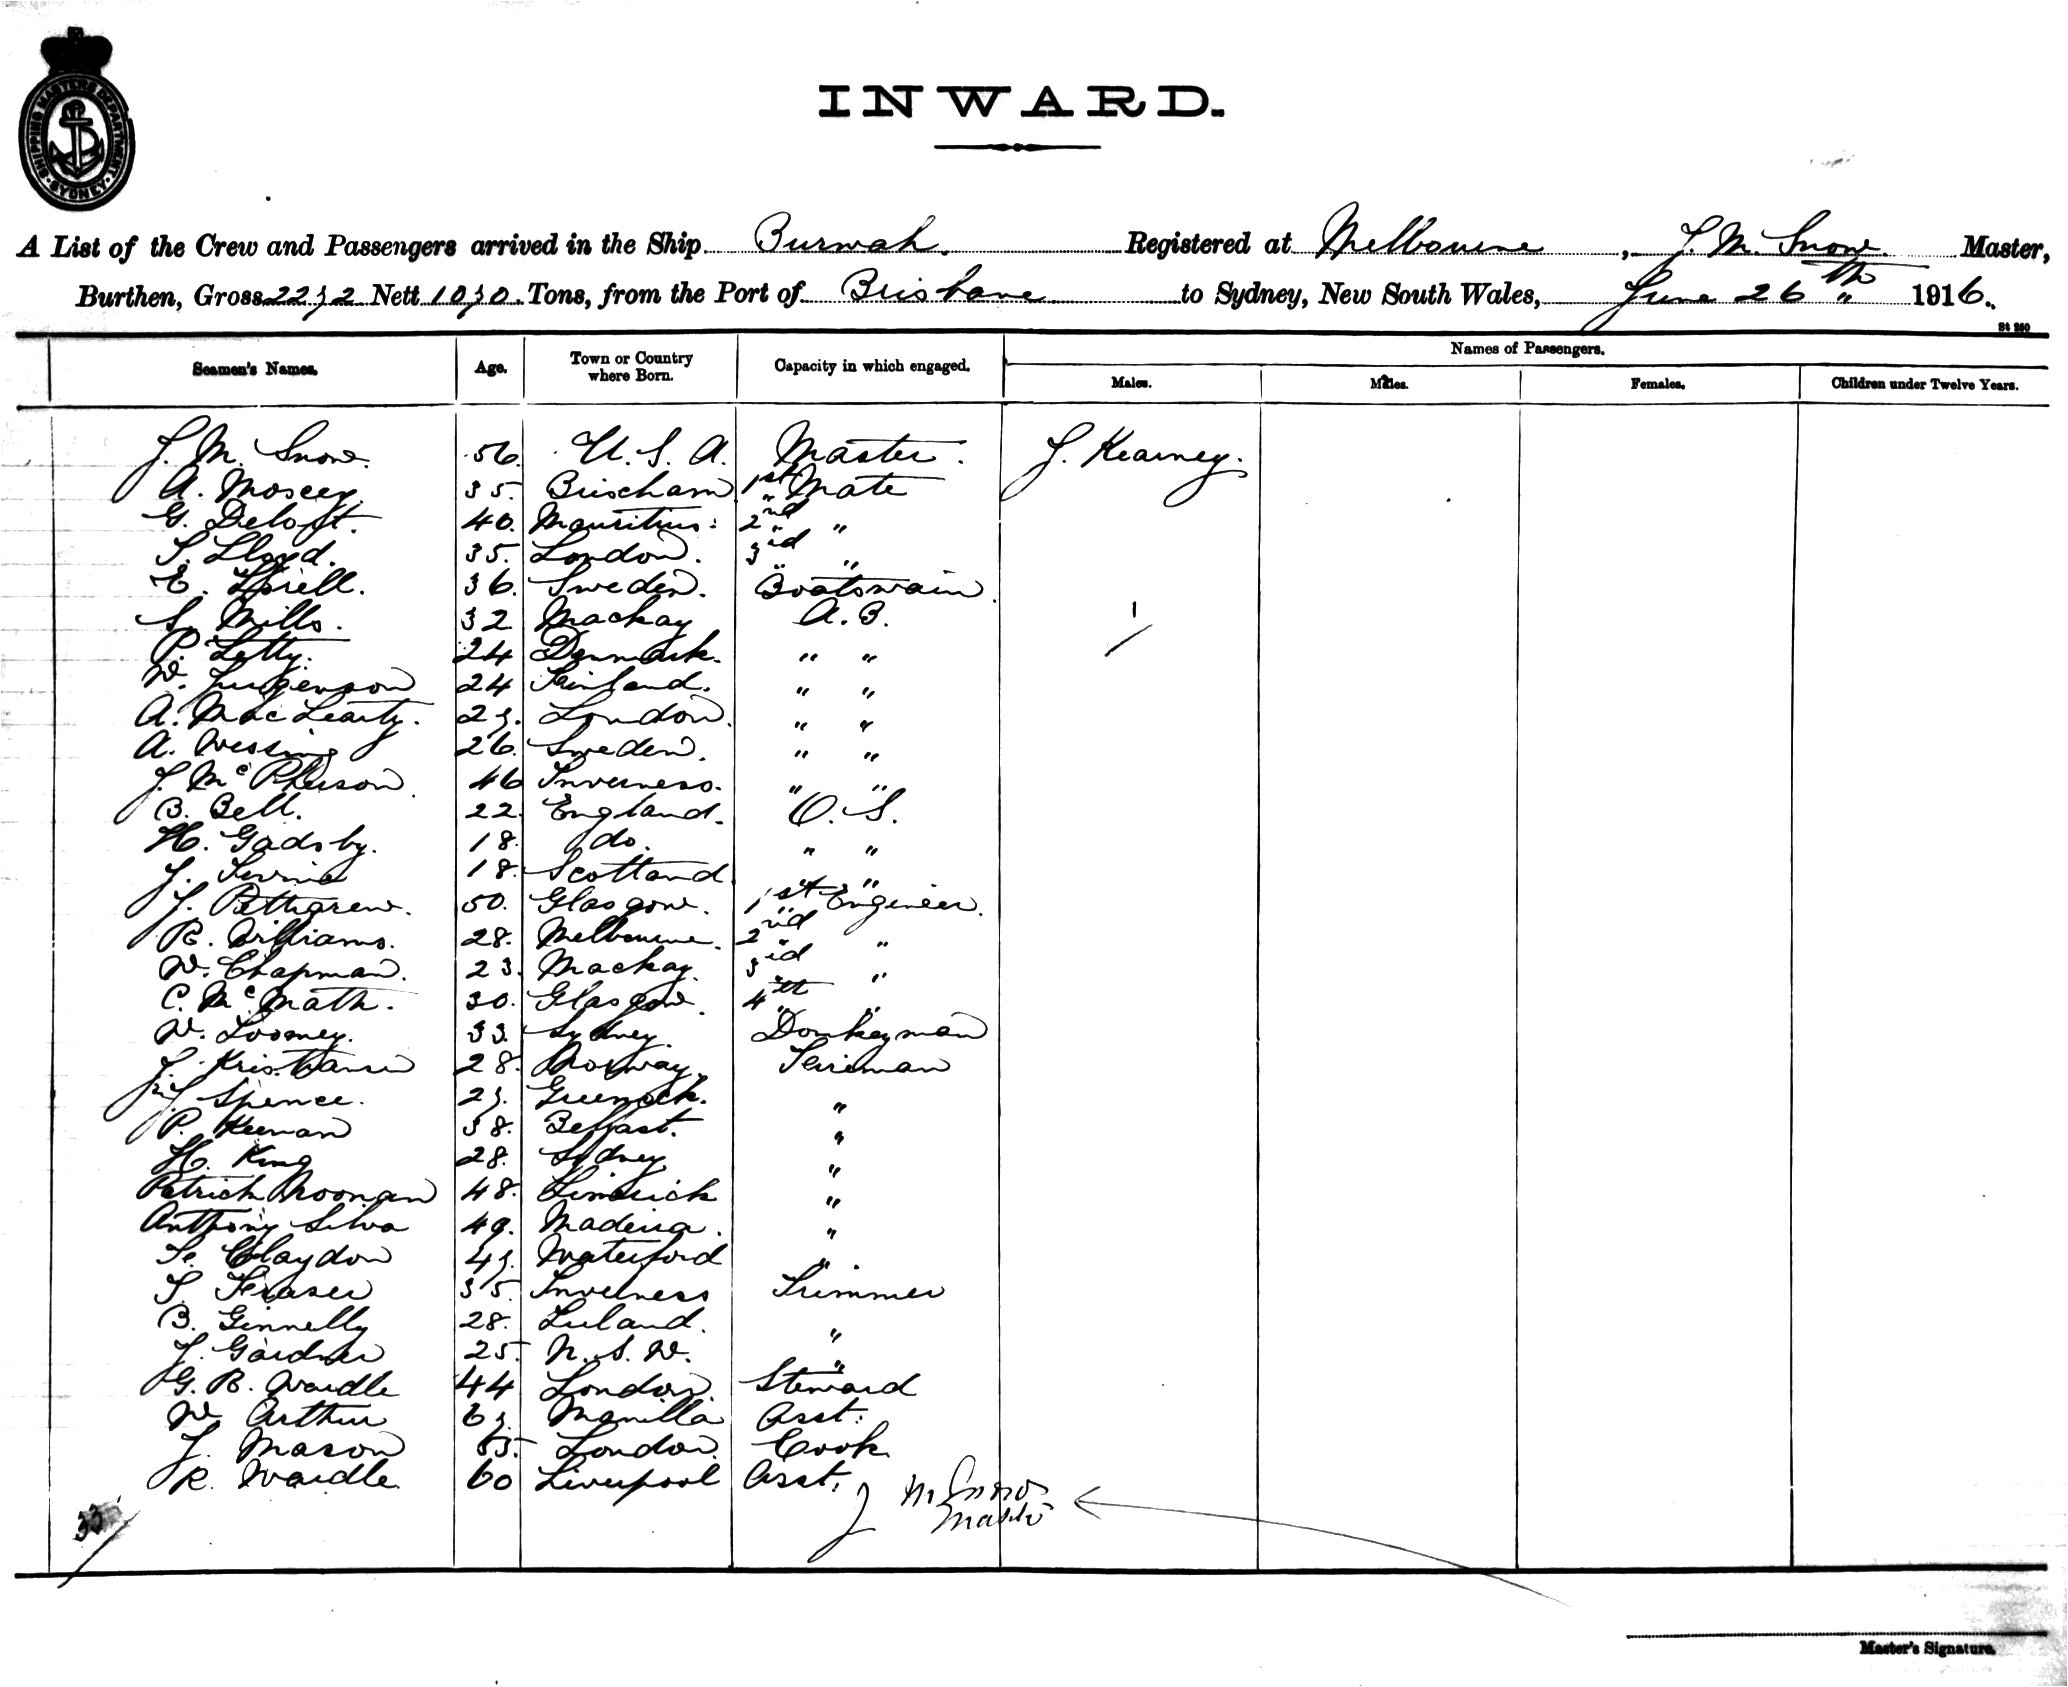 SHIPPING MASTERS DEPARTMENT SYDNEY
INWARD.
A List of the Crew and Passengers arrived in the Ship Burwah. Registered at Melbourne, J. M. Snow. Master,
Burthen, Gross 2272 Nett 1070. Tons, from the Port of Brisbane to Sydney, New South Wales, June 26th 1916.
St 260
Seamen's Names. Age. Town or Country where Born. Capacity in which engaged. Names of Passengers.
Males. Males. Females. Children under Twelve Years.
J. M. Snow. 56. U. S. A. Master. J. Kearney.
A. Moscey. 35. Brixham 1st Mate
G. Deloft. 40. Mauritius. 2nd "
S. Lloyd. 35. London. 3rd "
E. 36. Sweden. Boatswain.
S. Mills. 32 Mackay A. B. 1
P. Letty. 24 Denmark. " "
W. Jurgenson 24 Finland. " "
A. Mac Learty. 27. London. " "
A. Wessing 26. Sweden. " "
J. McPherson. 46 Inverness. " "
B. Bell. 22. England. O. S.
H. Gadsby. 18. do. " "
J. 18. Scotland. " "
J. Pettigrew. 50. Glasgow. 1st Engineer.
R. Williams. 28. Melbourne. 2nd "
W. Chapman. 23. Mackay. 3rd "
C. McMath. 30. Glasgow. 4th "
W. Loomey. 33. Sydney. Donkeyman
J. Kristiansen 28. Norway. Fireman
J. Spence. 27. Greenock. "
P. Keenan 38. Belfast. "
H. King 28. Sydney "
Patrick Noonan 48. Limerick "
Anthony Silva 49. Madeira. "
F. Claydon 47. Waterford "
S. Fraser 35. Inverness Trimmer
B. Ginnelly 28. Ireland. "
J. Gardner 25. N. S. W. "
G. R. Wardle 44 London. Steward
W. Arthur 67. Manilla Asst.
J. Mason 55. London. Cook
R. Wardle 60 Liverpool Asst.
J M Snow
Master
33
Master's Signature.